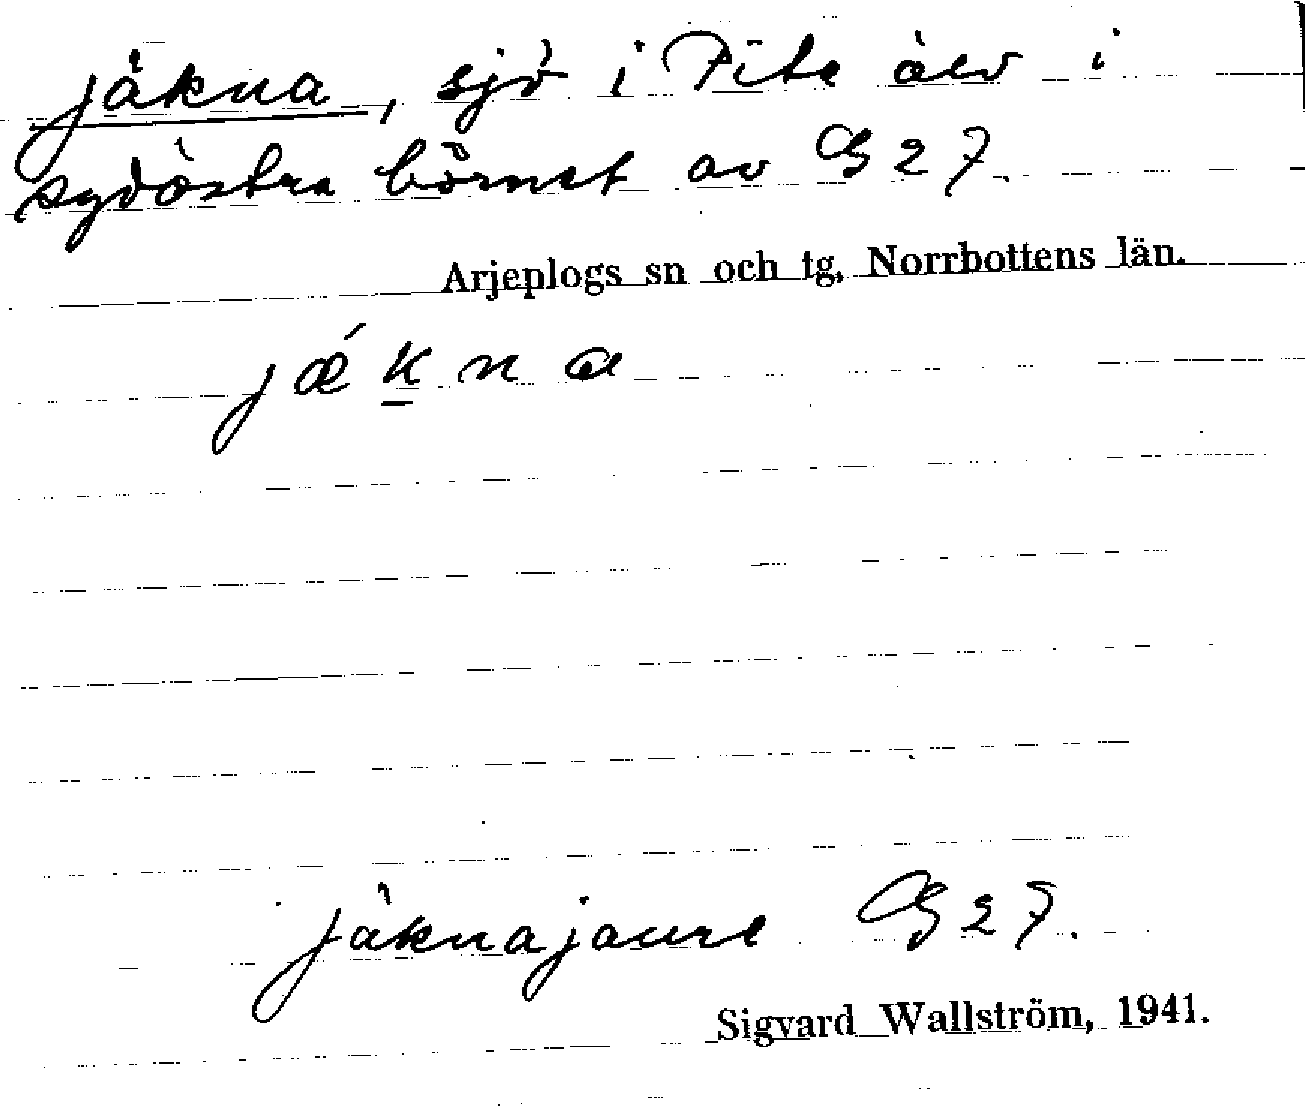 jäkna, sjö i Pite älv i
sydöstra hörnet av G 27.
Arjeplogs sn och tg, Norrbottens län.
jǽk̲na
jäknajaure G 27.
Sigvard Wallström, 1941.